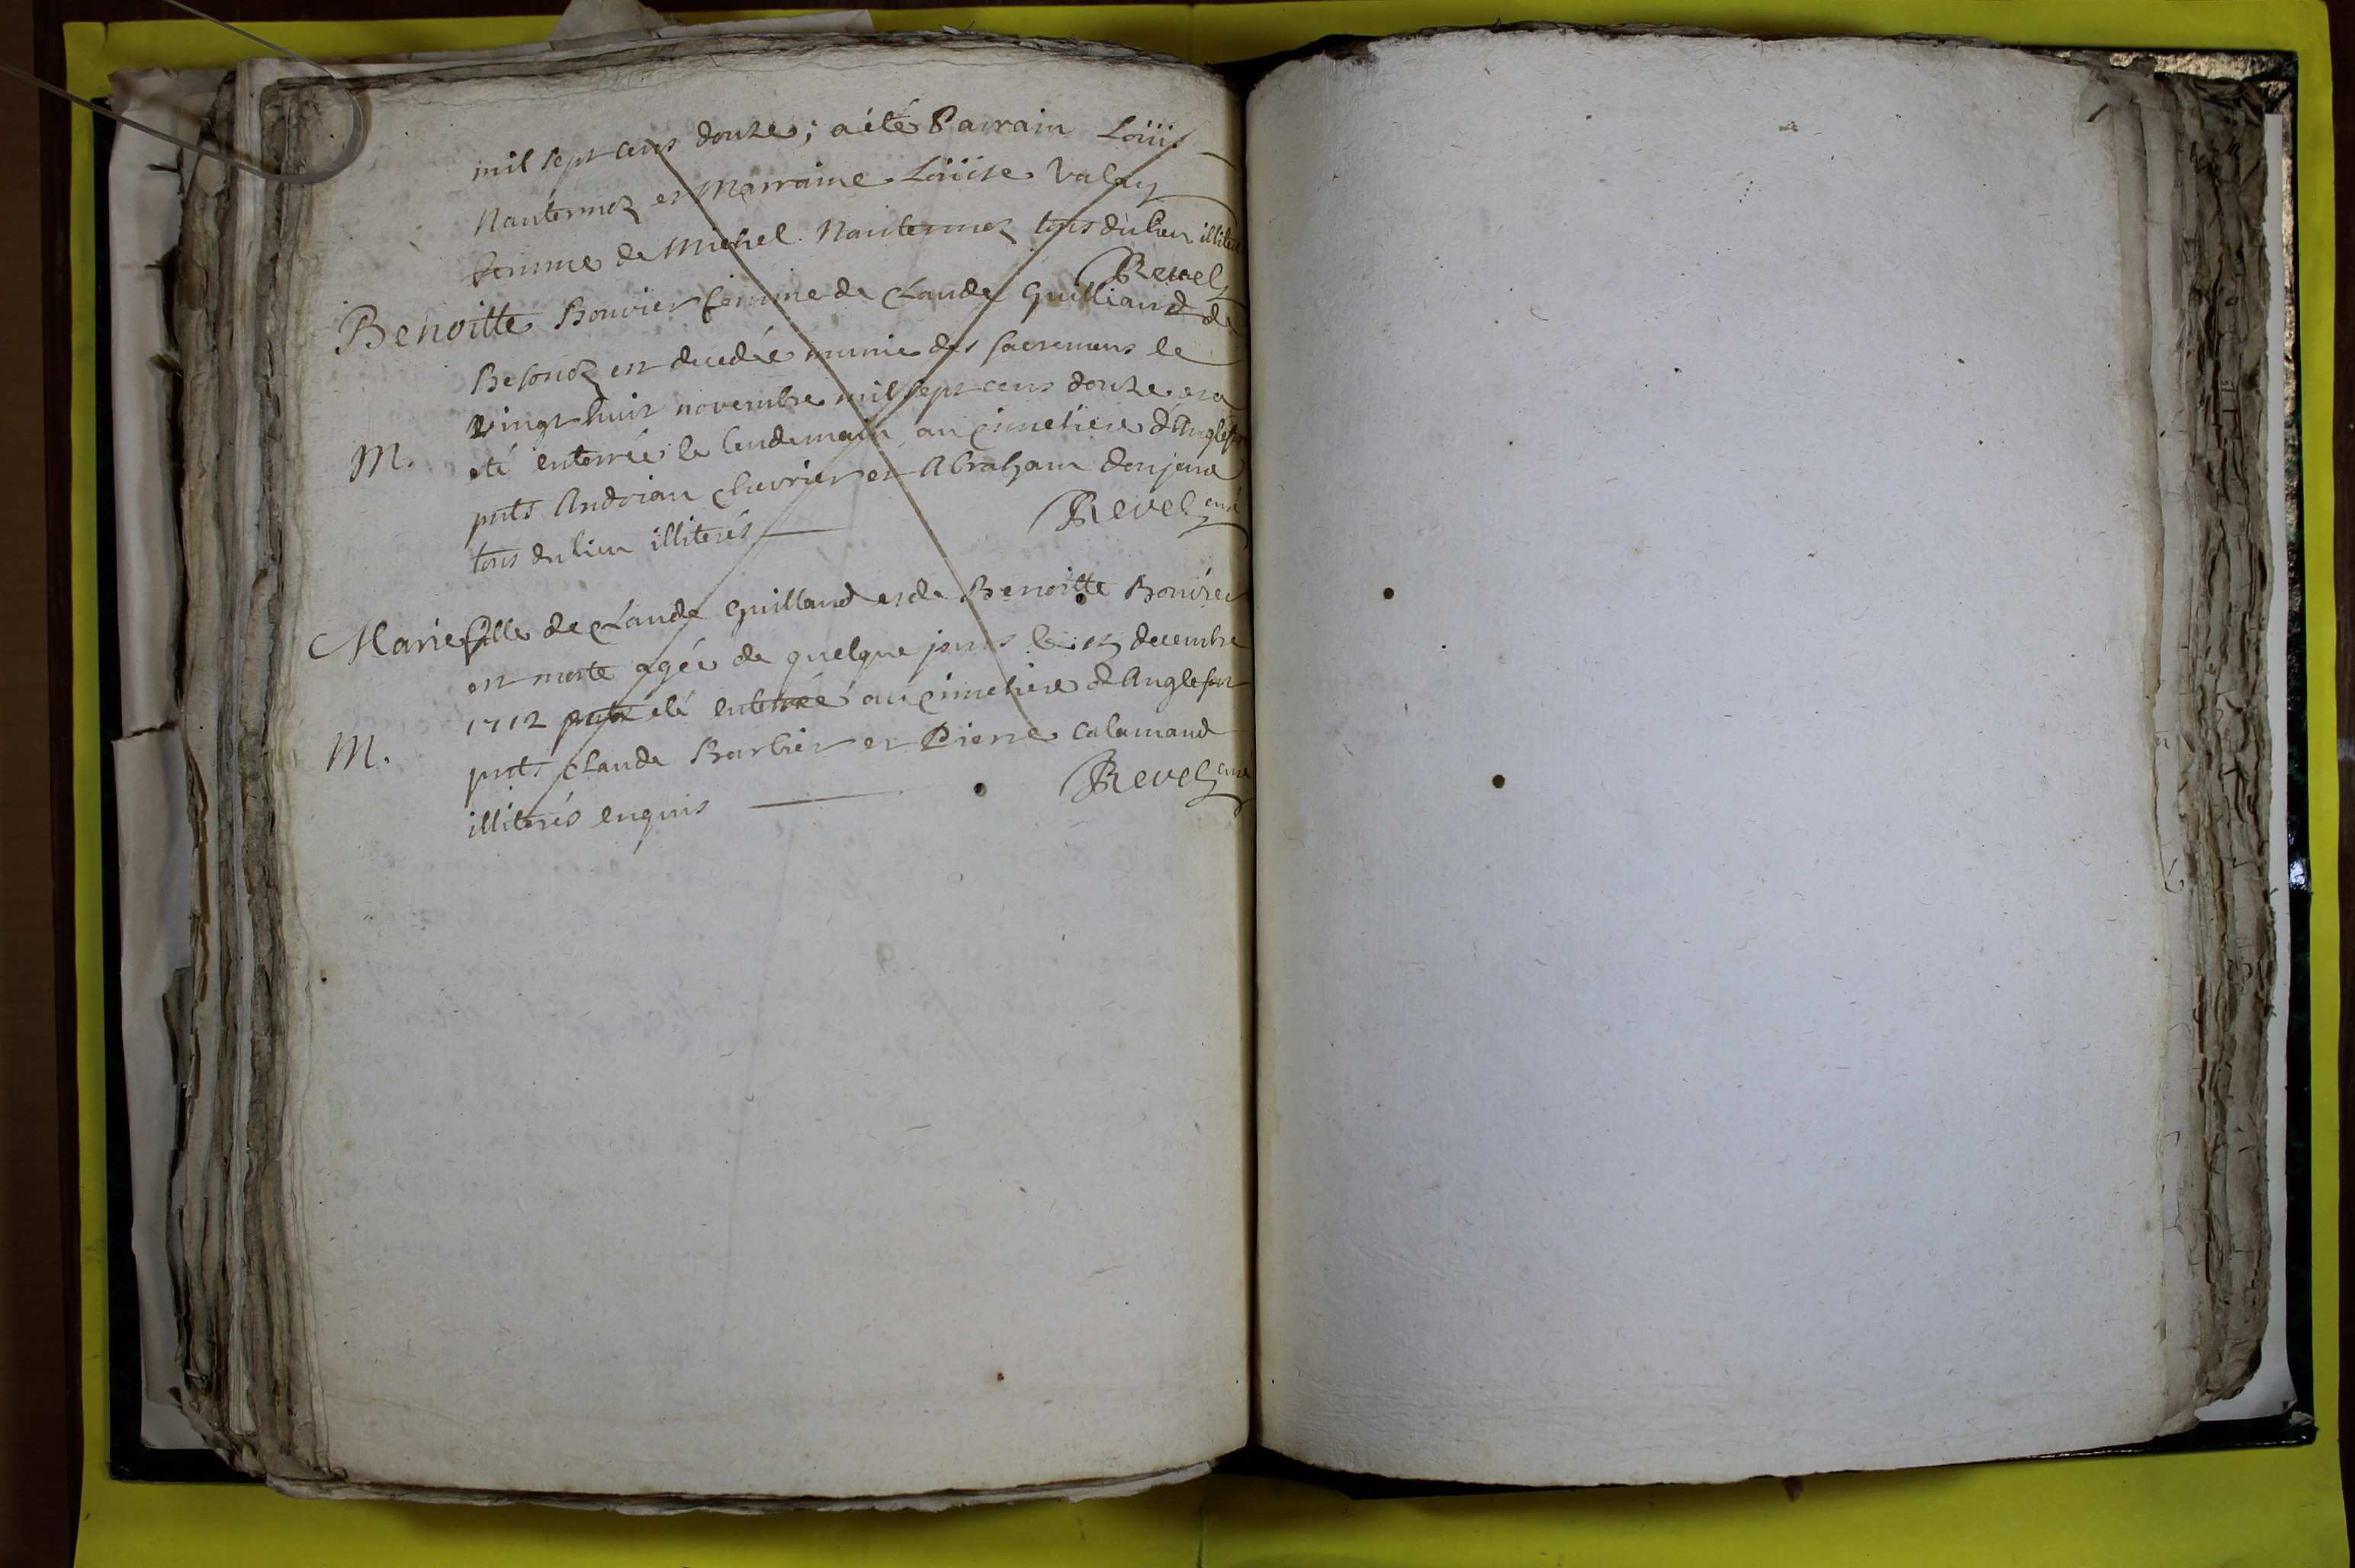 mil sept cens douze; a été Parrain Loüis
Nantermoz et Marraine Loüise Valay
femme de Michel Nantermoz tous du lieu illiterés
Revel
Benoitte Bouvier femme de Claude Guilliand de
Besonoz est decedée munie des sacremens le
vingt huit novembre mil sept cens douze et a
M. eté enterrée le lendemain au cimetiere d'Anglefort
pnts Andrian Chevrier et Abraham donjoud
tous du lieu illiterés Revel curé
Marie fille de Claude Guilland et de Benoitte Bouvier
est morte agée de quelque jours le decembre
1712 eté enterrée au cimetiere d'Anglefort
M. pnts Claude Barbier et Pierre Calamand
illiterés enquis Revel curé